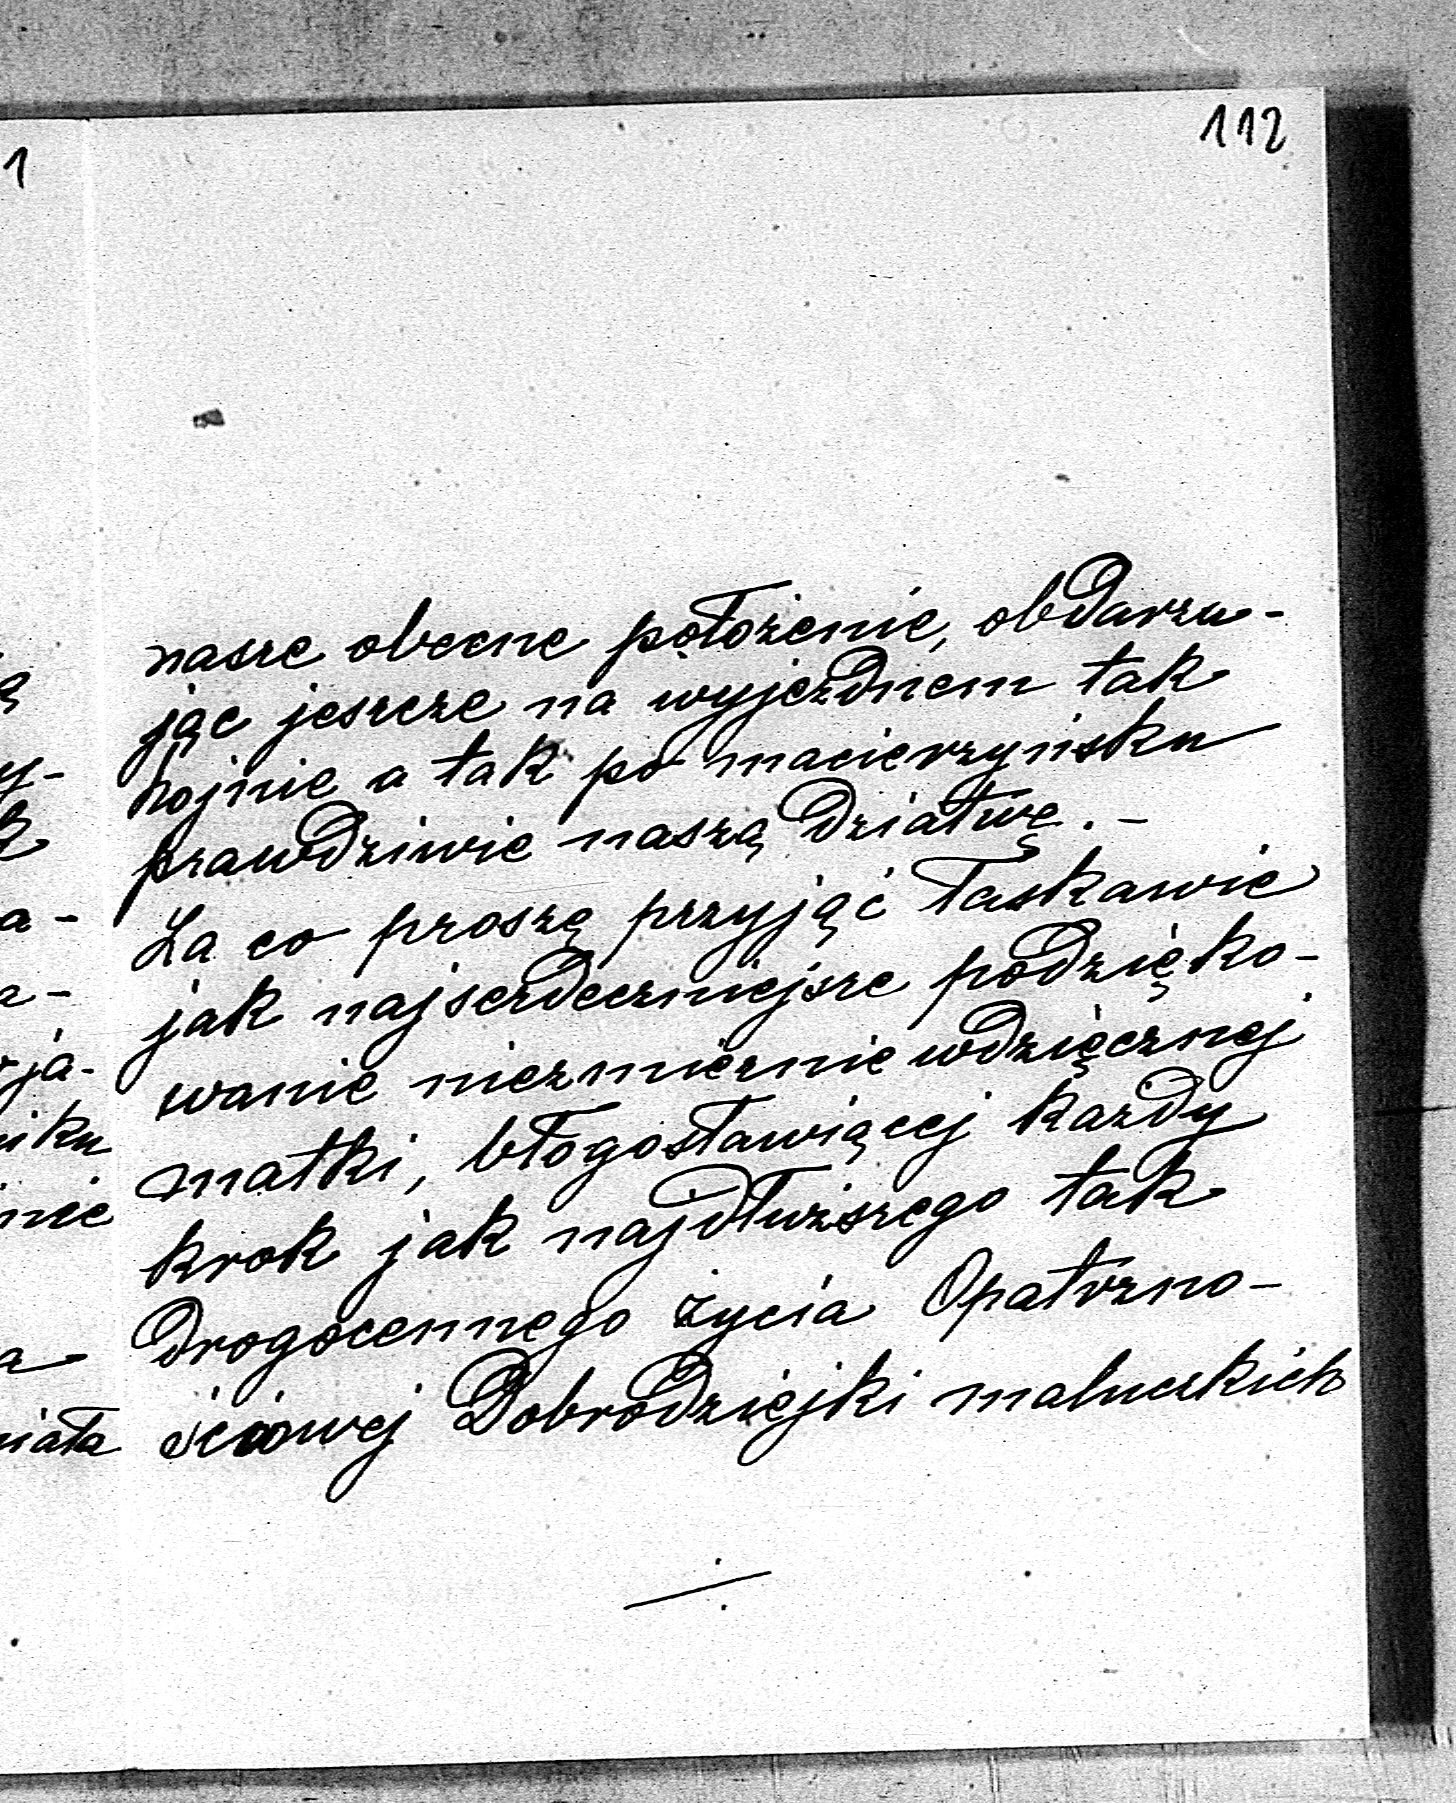 112
nasze obecne położenie, obdarzu-
jąc jeszcze na wyjezdnem tak
hojnie a tak po macierzyńsku
prawdziwie naszą dziatwę. -
Za co proszę przyjąć łaskawie
jak najserdeczniejsze podzięko-
wanie niezmiernie wdzięcznej
matki, błogosławiącej każdy
krok jak najdłuższego tak
drogocennego życia Opatrzno-
ściowej Dobrodziejki maluczkich
1
y-
a-
a-
ja-
iku
nie
a
iała